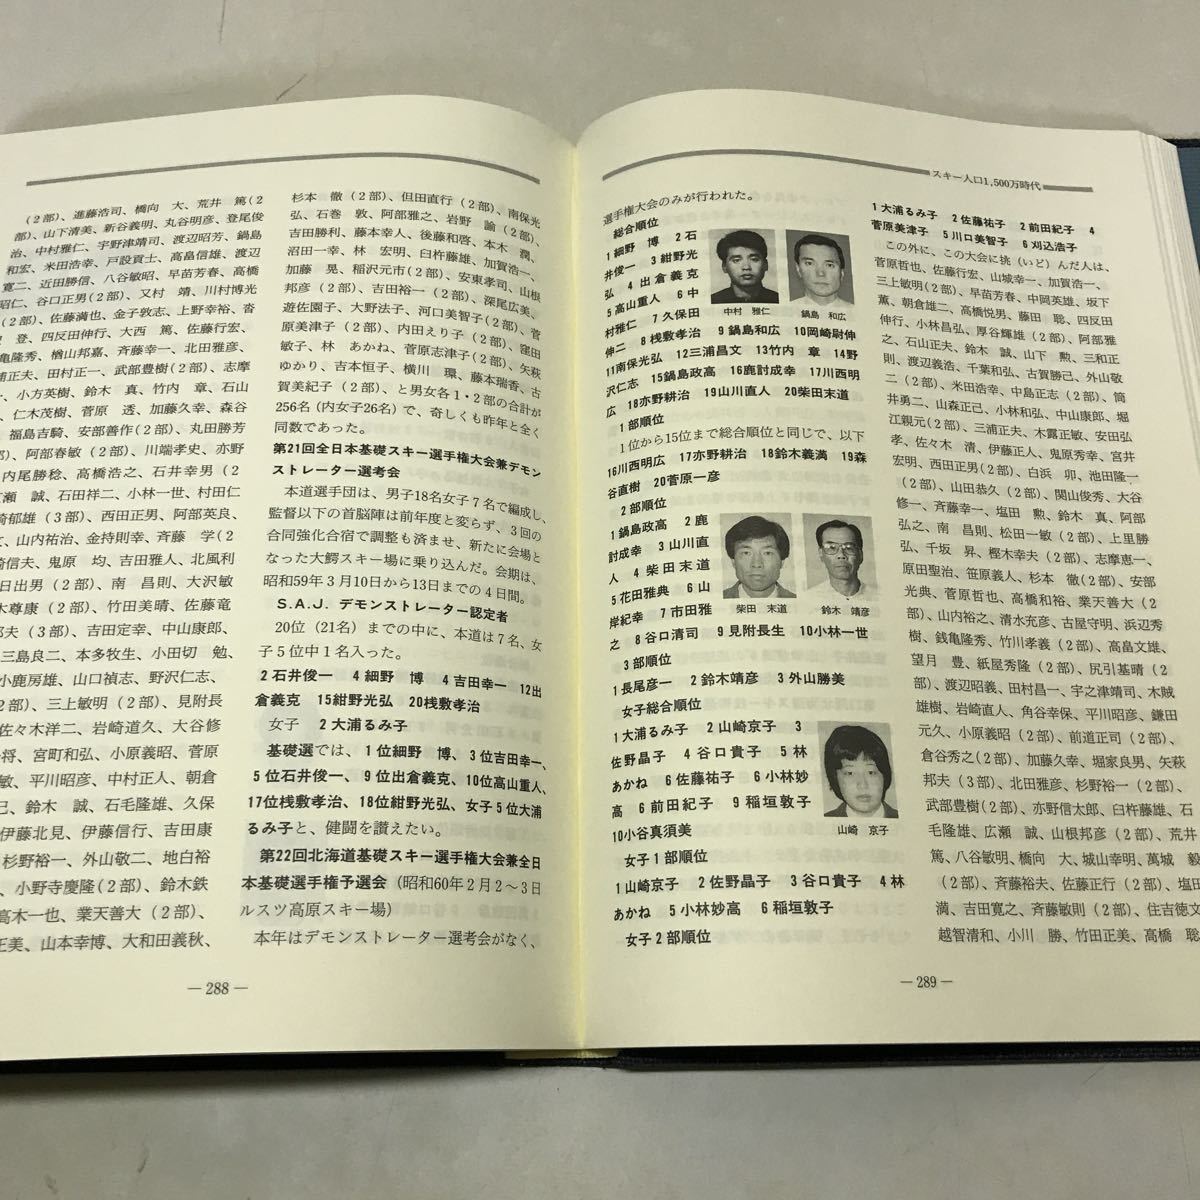 (2部)、進藤浩司、橋向 大、荒井 篤(2
部)、山下清美、新谷義明、丸谷明彦、登尾俊
治、中村雅仁、宇野津靖司、渡辺昭芳、鍋島
和宏、米田浩幸、戸設貢士、高畠信雄、渡辺
寛二、近田勝信、八谷敏昭、早苗芳春、高橋
昭仁、谷口正男(2部)、又村 靖、川村博光
(2部)、佐藤満也、金子敦志、上野幸裕、沓
登、四反田伸行、大西 篤、佐藤行宏、
亀隆秀、楢山邦嘉、斉藤幸一、北田雅彦、
浦正夫、田村正一、武部豊樹(2部)、志摩
、小方英樹、鈴木 真、竹内 章、石山
、仁木茂樹、菅原 透、加藤久幸、森谷
、福島吉騎、安部善作(2部)、丸田勝芳
部)、阿部春敏(2部)、川端孝史、亦野
内尾勝稔、高橋浩之、石井幸男(2
広瀬 誠、石田祥二、小林一世、村田仁
崎郁雄(3部)、西田正男、阿部英良、
、山内祐治、金持則幸、斉藤 学(2
崎信夫、鬼原 均、吉田雅人、北風利
日出男(2部)、南 昌則、大沢敏
木尊康(2部)、竹田美晴、佐藤竜
邦夫(3部)、吉田定幸、中山康郎、
三島良二、本多牧生、小田切 勉、
小鹿房雄、山口禎志、野沢仁志、
2部)、三上敏明(2部)、見附長
佐々木洋二、岩崎道久、大谷修
将、宮町和弘、小原義昭、菅原
敏、平川昭彦、中村正人、朝倉
己、鈴木 誠、石毛隆雄、久保
伊藤北見、伊藤信行、吉田康
杉野裕一、外山敬二、地白裕
、小野寺慶隆(2部)、鈴木鉄
高木一也、業天善大(2部)、
正美、山本幸博、大和田義秋、
杉本 徹(2部)、但田直行(2部)、南保光
弘、石巻 敦、阿部雅之、岩野 諭(2部)、
吉田勝利、藤本幸人、後藤和啓、本木 潤、
沼田一幸、林 宏明、臼杵藤雄、加賀浩一、
加藤 晃、稲沢元市(2部)、安東孝司、山根
邦彦(2部)、吉田裕一(2部)、深尾広美、
遊佐園子、大野法子、河口美智子(2部)、菅
原美津子(2部)、内田えり子(2部)、窪田
敏子、林 あかね、菅原志津子(2部)、矢萩
ゆかり、吉本恒子、横川 環、藤本瑞香、古
賀美紀子(2部)、と男女各1・2部の合計が
256名(内女子26名)で、奇しくも昨年と全く
同数であった。
第21回全日本基礎スキー選手権大会兼デモン
ストレーター選考会
本道選手団は、男子18名女子7名で編成し、
監督以下の首脳陣は前年度と変らず、3回の
合同強化合宿で調整も済ませ、新たに会場と
なった大鰐スキー場に乗り込んだ。会期は、
昭和59年3月10日から13日までの4日間。
S.A.J. デモンストレーター認定者
20位(21名)までの中に、本道は7名、女
子5位中1名入った。
2石井俊一 4細野 博 4吉田幸一 12出
倉義克 15紺野光弘 20桟敷孝治
女子 2大浦るみ子
基礎選では、1位細野 博、3位吉田幸一、
5位石井俊一、9位出倉義克、10位高山重人、
17位桟敷孝治、18位紺野光弘、女子5位大浦
るみ子と、健闘を讃えたい。
第22回北海道基礎スキー選手権大会兼全日
本基礎選手権予選会(昭和60年2月2〜3日
ルスツ高原スキー場)
本年はデモンストレーター選考会がなく、
— 288 —
スキー人口1,500万時代
選手権大会のみが行われた。
総合順位
1細野 博 2石
井俊一 3紺野光
弘 4出倉義克
5高山重人 6中
村雅仁 7久保田
伸二 8桟敷孝治 9鍋島和広 10岡崎尉伸
11南保光弘 12三浦昌文 13竹内 章 14野
沢仁志 15鍋島政高 16鹿討成幸 17川西明
広 18亦野耕治 19山川直人 20柴田末道
1部順位
1位から15位まで総合順位と同じで、以下
16川西明広 17亦野耕治 18鈴木義満 19森
谷直樹 20菅原一彦
2部順位
1鍋島政高 2鹿
討成幸 3山川直
人 4柴田末道
5花田雅典 6山
岸紀幸 7市田雅
之 8谷口清司 9見附長生 10小林一世
3部順位
1長尾彦一 2鈴木靖彦 3外山勝美
女子総合順位
1大浦るみ子 2山崎京子 3
佐野晶子 4谷口貴子 5林
あかね 6佐藤祐子 6小林妙
高 6前田紀子 9稲垣敦子
10小谷真須美
女子1部順位
1山崎京子 2佐野晶子 3谷口貴子 4林
あかね 5小林妙高 6稲垣敦子
女子2部順位
中村 雅仁
鍋島 和広
柴田 末道
鈴木 靖彦
山崎 京子
1大浦るみ子 2佐藤祐子 2前田紀子 4
菅原美津子 5川口美智子 6刈込浩子
この外に、この大会に挑(いど)んだ人は、
菅原哲也、佐藤行宏、山城幸一、加賀浩一、
三上敏明(2部)、早苗芳春、中岡英雄、坂下
薫、朝倉雄二、高橋悦男、藤田 聡、四反田
伸行、小林昌弘、厚谷輝雄(2部)、阿部雅
之、石山正夫、鈴木 誠、山下 勲、三和正
則、渡辺義浩、千葉和弘、古賀勝己、外山敬
二(2部)、米田浩幸、中島正志(2部)、筒
井勇二、山森正己、小林和弘、中山康郎、堀
江親元(2部)、三浦正夫、木露正敏、安田弘
孝、佐々木 清、伊藤正人、鬼原秀幸、宮井
宏明、西田正男(2部)、白浜 卯、池田隆一
(2部)、山田恭久(2部)、関山俊秀、大谷
修一、斉藤幸一、塩田 勲、鈴木 真、阿部
弘之、南 昌則、松田一敏(2部)、上里勝
弘、千坂 昇、樫木幸夫(2部)、志摩恵一、
原田聖治、笹原義人、杉本 徹(2部)、安部
光典、菅原哲也、高橋和裕、業天善大(2
部)、山内裕之、清水充彦、古屋守明、浜辺秀
樹、銭亀隆秀、竹川孝義(2部)、高畠文雄、
望月 豊、紙屋秀隆(2部)、尻引基晴(2
部)、渡辺昭義、田村昌一、宇之津靖司、木賊
雄樹、岩崎直人、角谷幸保、平川昭彦、鎌田
元久、小原義昭(2部)、前道正司(2部)、
倉谷秀之(2部)、加藤久幸、堀家良男、矢萩
邦夫(3部)、北田雅彦、杉野裕一(2部)、
武部豊樹(2部)、亦野信太郎、臼杵藤雄、石
毛隆雄、広瀬 誠、山根邦彦(2部)、荒井
篤、八谷敏明、橋向 大、城山幸明、萬城 毅
(2部)、斉藤裕夫、佐藤正行(2部)、塩田
満、吉田寛之、斉藤敏則(2部)、住吉徳文
越智清和、小川 勝、竹田正美、高橋 聡、
— 289 —